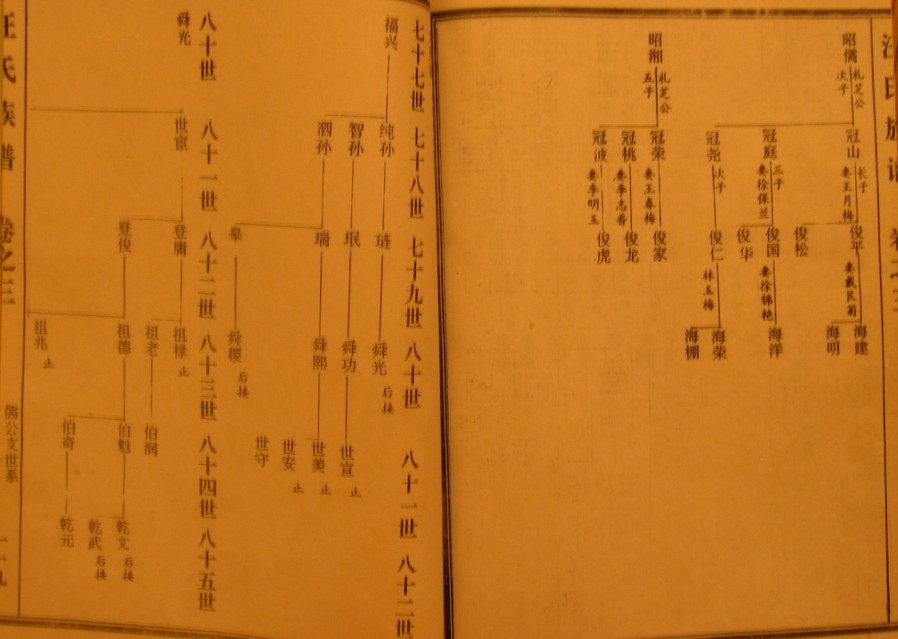 昭儒 礼芝公 次子
冠山 长子 妻王月梅
冠庭 三子 妻徐保兰
冠尧 次子
俊平 妻戴艮菊
俊松
俊国 妻徐锦艳
俊华
俊仁 林玉梅
海建
海明
海洋
海荣
海棚
昭湘 礼芝公 五子
冠荣 妻王春梅
冠桃 妻季志香
冠波 妻季明玉
俊家
俊龙
俊虎
七十七世 七十八世 七十九世 八十世 八十一世 八十二世
福兴
纯孙
智孙
泗孙
琏
珉
瑞
皋
舜光 后接
舜功
舜熙
舜稷 后接
世宣 止
世美 止
世安 止
世守
八十世 八十一世 八十二世 八十三世 八十四世 八十五世
舜光
世宦
登庸
登俊
祖禄 止
祖老
祖德
祖兆 止
伯润
伯魁
伯奇
乾文 后接
乾武 后接
乾元
汪氏族谱 卷之三 儒公支世系